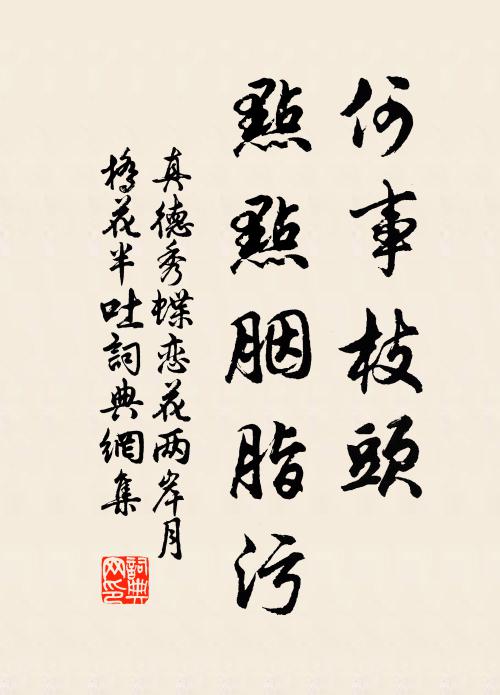 何事枝頭
點點胭脂污
真德秀蝶恋花两岸月
橋花半吐詞典網集
詞典
网印